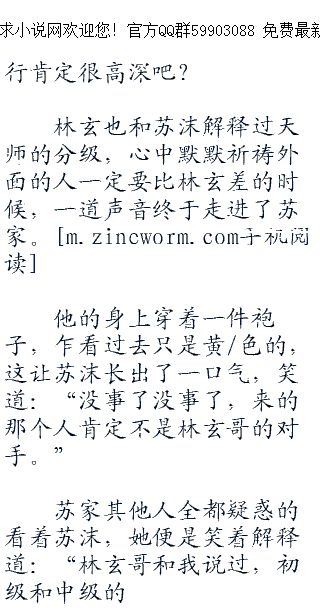 求小说网欢迎您！官方QQ群59903088 免费最新
行肯定很高深吧？
林玄也和苏沫解释过天
师的分级，心中默默祈祷外
面的人一定要比林玄差的时
候，一道声音终于走进了苏
家。[m.zincworm.com手机阅
读]
他的身上穿着一件袍
子，乍看过去只是黄/色的，
这让苏沫长出了一口气，笑
道：“没事了没事了，来的
那个人肯定不是林玄哥的对
手。”
苏家其他人全都疑惑的
看着苏沫，她便是笑着解释
道：“林玄哥和我说过，初
级和中级的